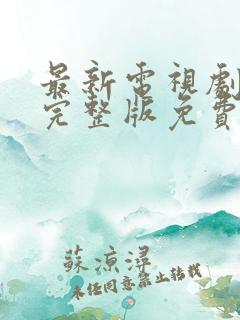 最新電視劇
完整版免費
蘇涼潯
未經同意禁止轉載